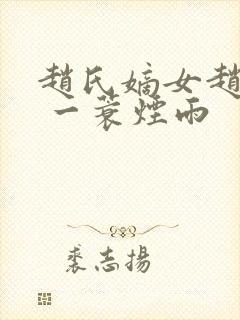 趙氏嫡女趙
一蓑煙雨
裘志揚